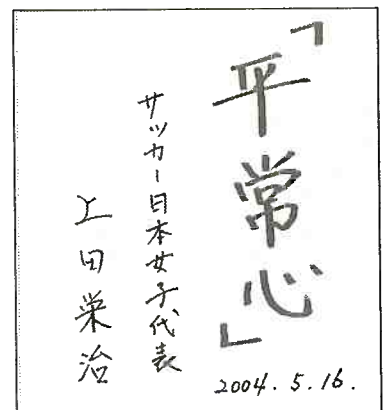 「平常心」
サッカー日本女子代表
上田栄治
2004.5.16.